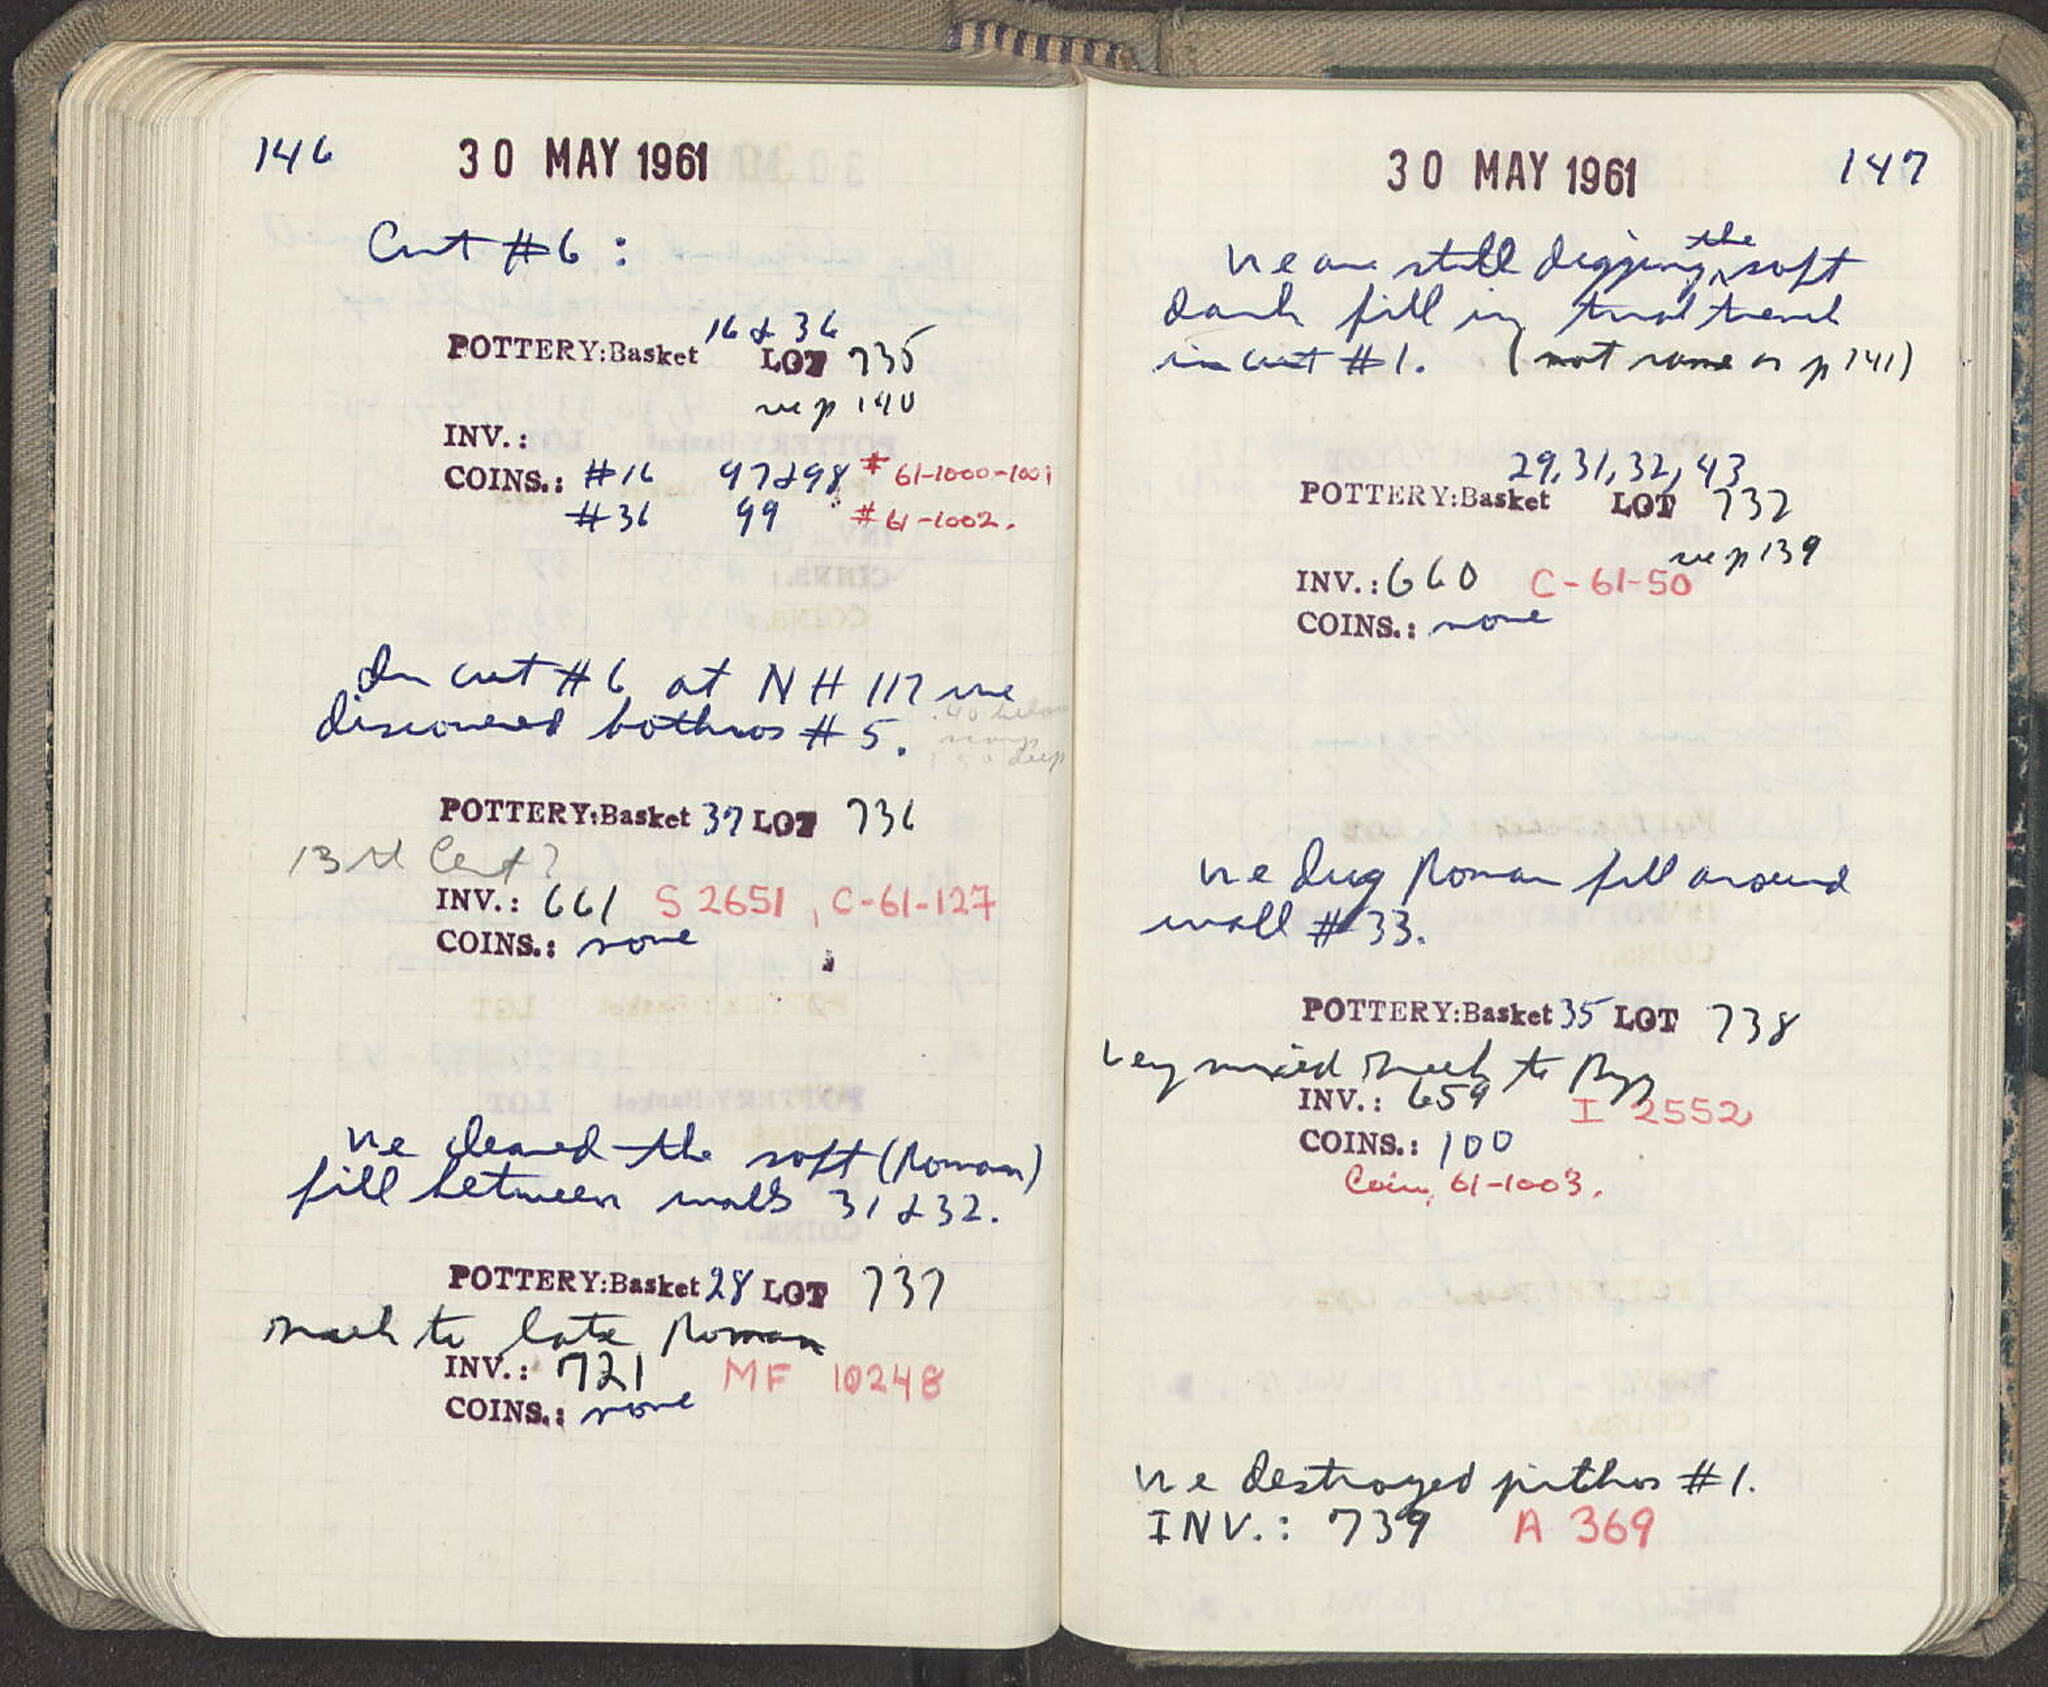 146 30 MAY 1961
Cut #6:
16 & 36
POTTERY:Basket LOT 735
see p 140
INV.:
COINS.: #16 97 & 98 # 61-1000-1001
#36 99 # 61-1002.
In cut #6 at NH 117 we
discovered bothros #5.
.40 below
scarp
1.50 deep
POTTERY:Basket 37 LOT 736
13th Cent?
INV.: 661 S 2651, C-61-127
COINS.: none
We cleaned the soft (Roman)
fill between walls 31 & 32.
POTTERY:Basket 28 LOT 737
Greek to late Roman
INV.: 721 MF 10248
COINS.: none
30 MAY 1961 147
the
We are still digging soft
dark fill in trial trench
in cut #1. (not same as p 141)
29, 31, 32, 43
POTTERY:Basket LOT 732
see p 139
INV.: 660 C-61-50
COINS.: none
We dug Roman fill around
wall #33.
POTTERY:Basket 35 LOT 738
Very mixed Greek to Byz
INV.: 659 I 2552
COINS.: 100
Coin, 61-1003.
We destroyed pithos #1.
INV.: 739 A 369